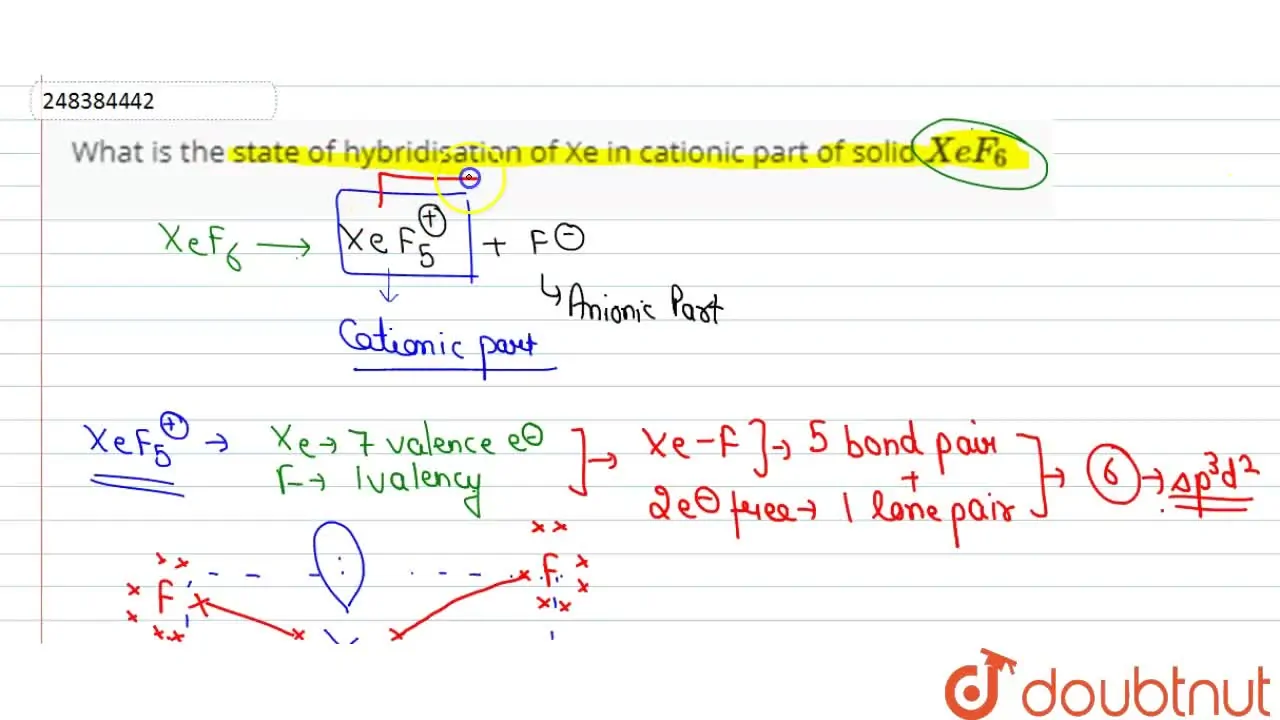 248384442
What is the state of hybridisation of Xe in cationic part of solid XeF₆
XeF₆ → XeF₅⊕ + F⊖
↳ Anionic Part
Cationic part
XeF₅⊕ → Xe → 7 valence e⊖ ] → Xe-F ] → 5 bond pair
F → 1 valency + ] → 6 → sp³d²
2e⊖ free → 1 lone pair
F F
doubtnut